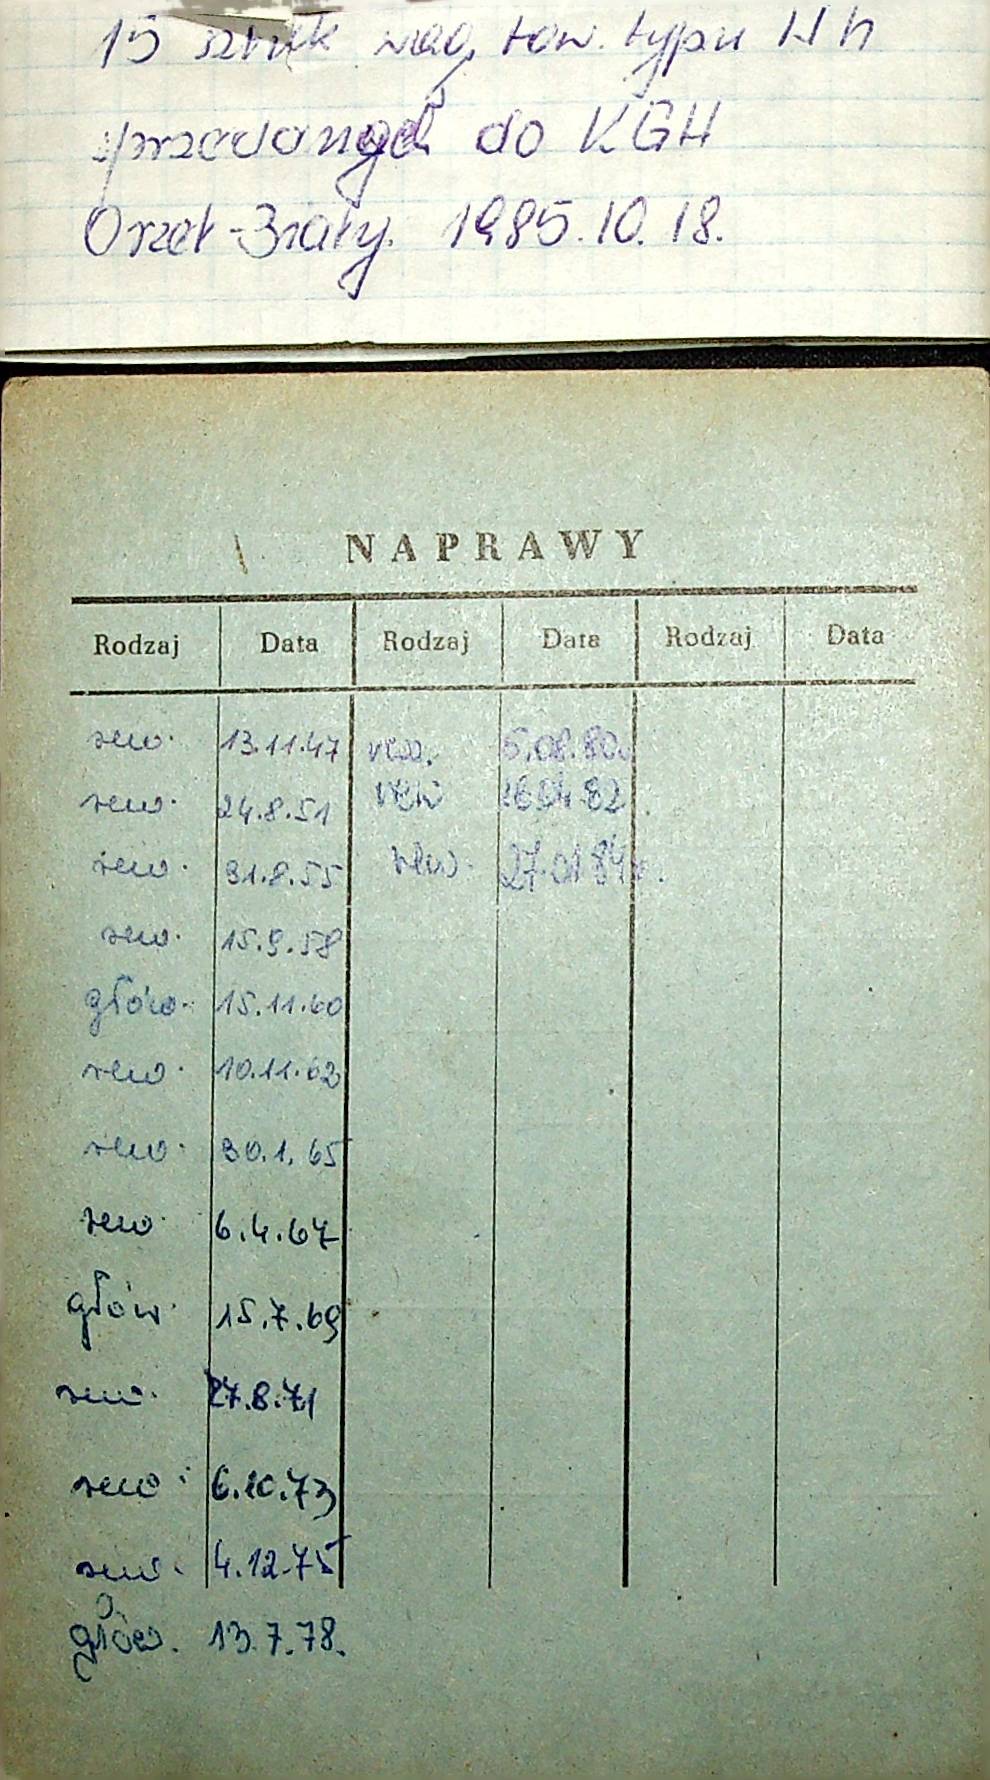 15 sztuk wag. tow. typu Wh
sprzedanych do KGH
Orzeł-Biały. 1985.10.18.
NAPRAWY
Rodzaj Data Rodzaj Data Rodzaj Data
rew. 13.11.47 rew. 5.08.80.
rew. 24.8.51 rew 82.
rew. 31.8.55 rew. 27.01.84r.
rew. 15.9.58
głów. 15.11.60
rew. 10.11.62
rew. 30.1.65
rew. 6.4.67
głów. 15.7.69
rew. 27.8.71
rew. 6.10.73
rew. 4.12.75
głów. 13.7.78.